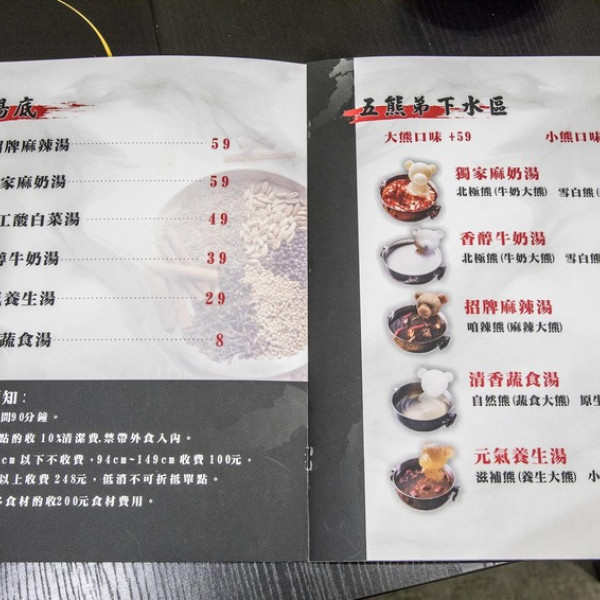 湯底
招牌麻辣湯 59
家麻奶湯 59
工酸白菜湯 49
醇牛奶湯 39
氣養生湯 29
蔬食湯 8
知:
間90分鐘。
點酌收10%清潔費.禁帶外食入內。
cm以下不收費,94cm~149cm收費100元,
以上收費248元,低消不可折抵單點。
食材酌收200元食材費用。
五熊弟下水區
大熊口味 +59 小熊口味
獨家麻奶湯
北極熊(牛奶大熊) 雪白熊(
香醇牛奶湯
北極熊(牛奶大熊) 雪白熊
招牌麻辣湯
嗆辣熊(麻辣大熊)
清香蔬食湯
自然熊(蔬食大熊) 原生
元氣養生湯
滋補熊(養生大熊) 小